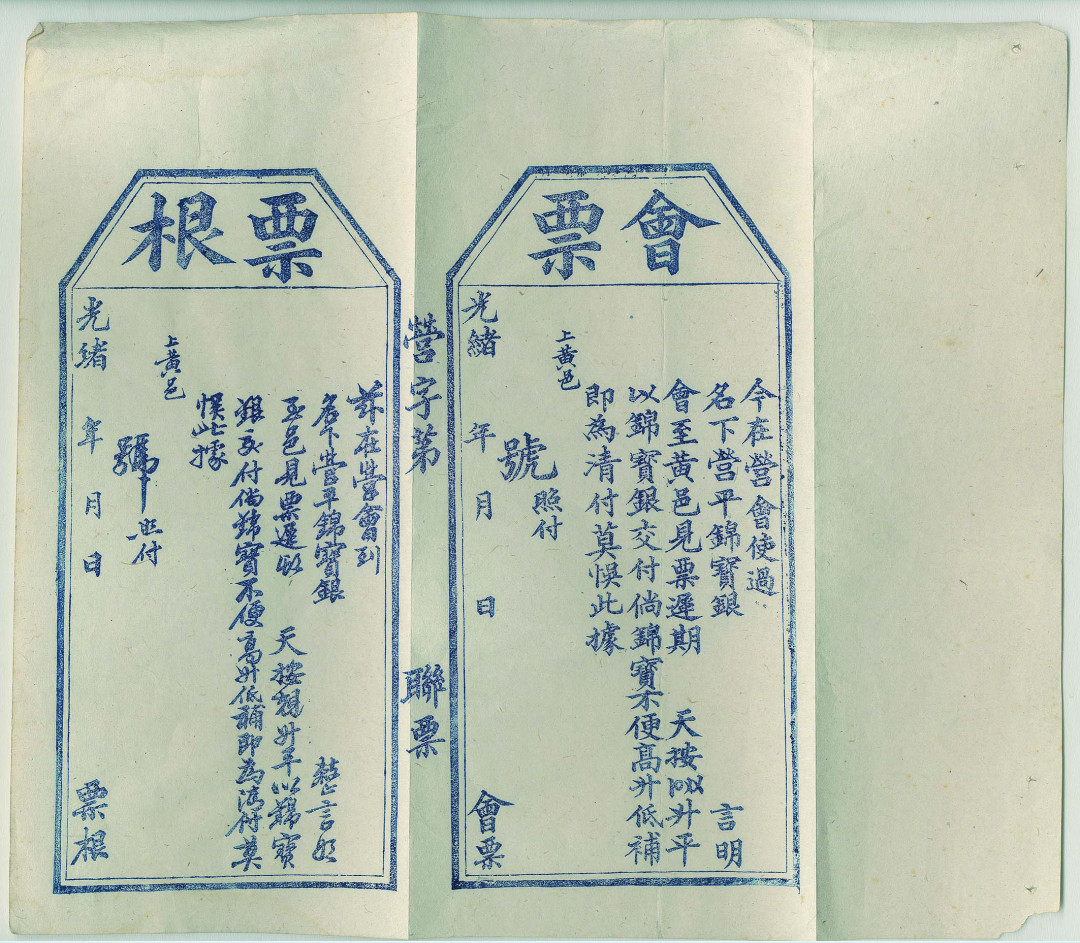 會票
今在營會使過
名下營平錦寶銀 言明
會至黃邑見票遲期 天按 升平
以錦寶銀交付倘錦寶不便高升低補
即為清付莫悞此據
上黃邑
號照付
光緒 年 月 日 會票
營字第 聯票
票根
茲在營會到
名下營平錦寶銀 整言明
至邑見票遲 天按 升平以錦寶
銀交付倘錦寶不便高升低補即為清付莫
悞此據
上黃邑
號照付
光緒 年 月 日 票根